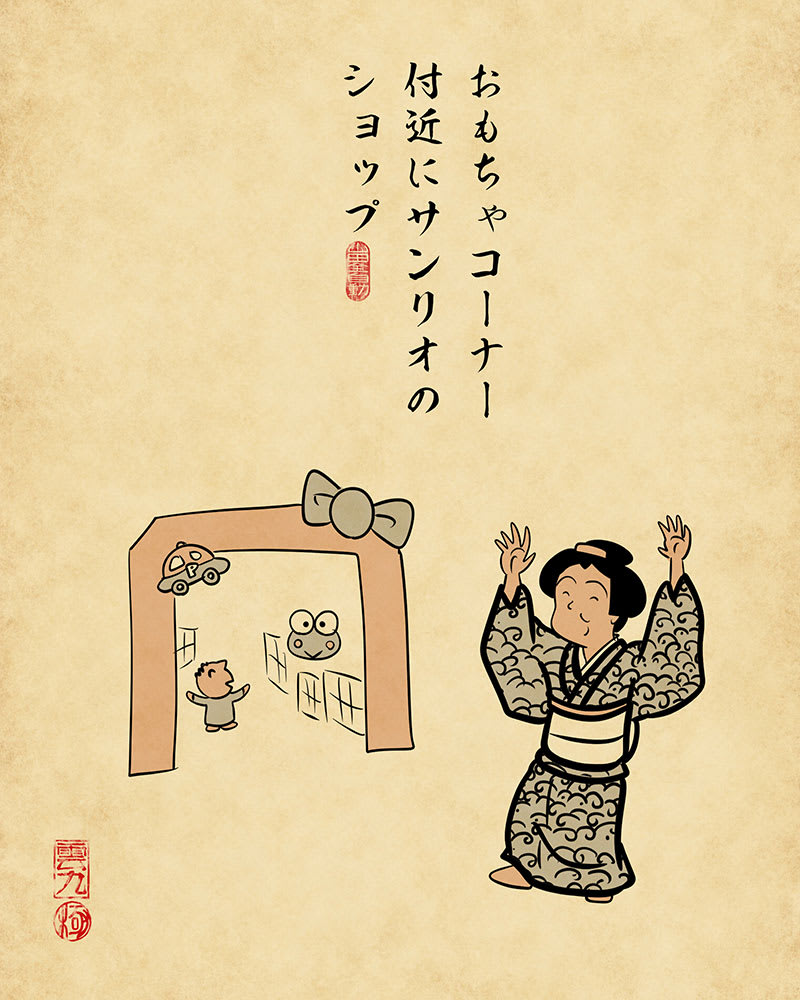 おもちゃコーナー
付近にサンリオの
ショップ
雲丸
極